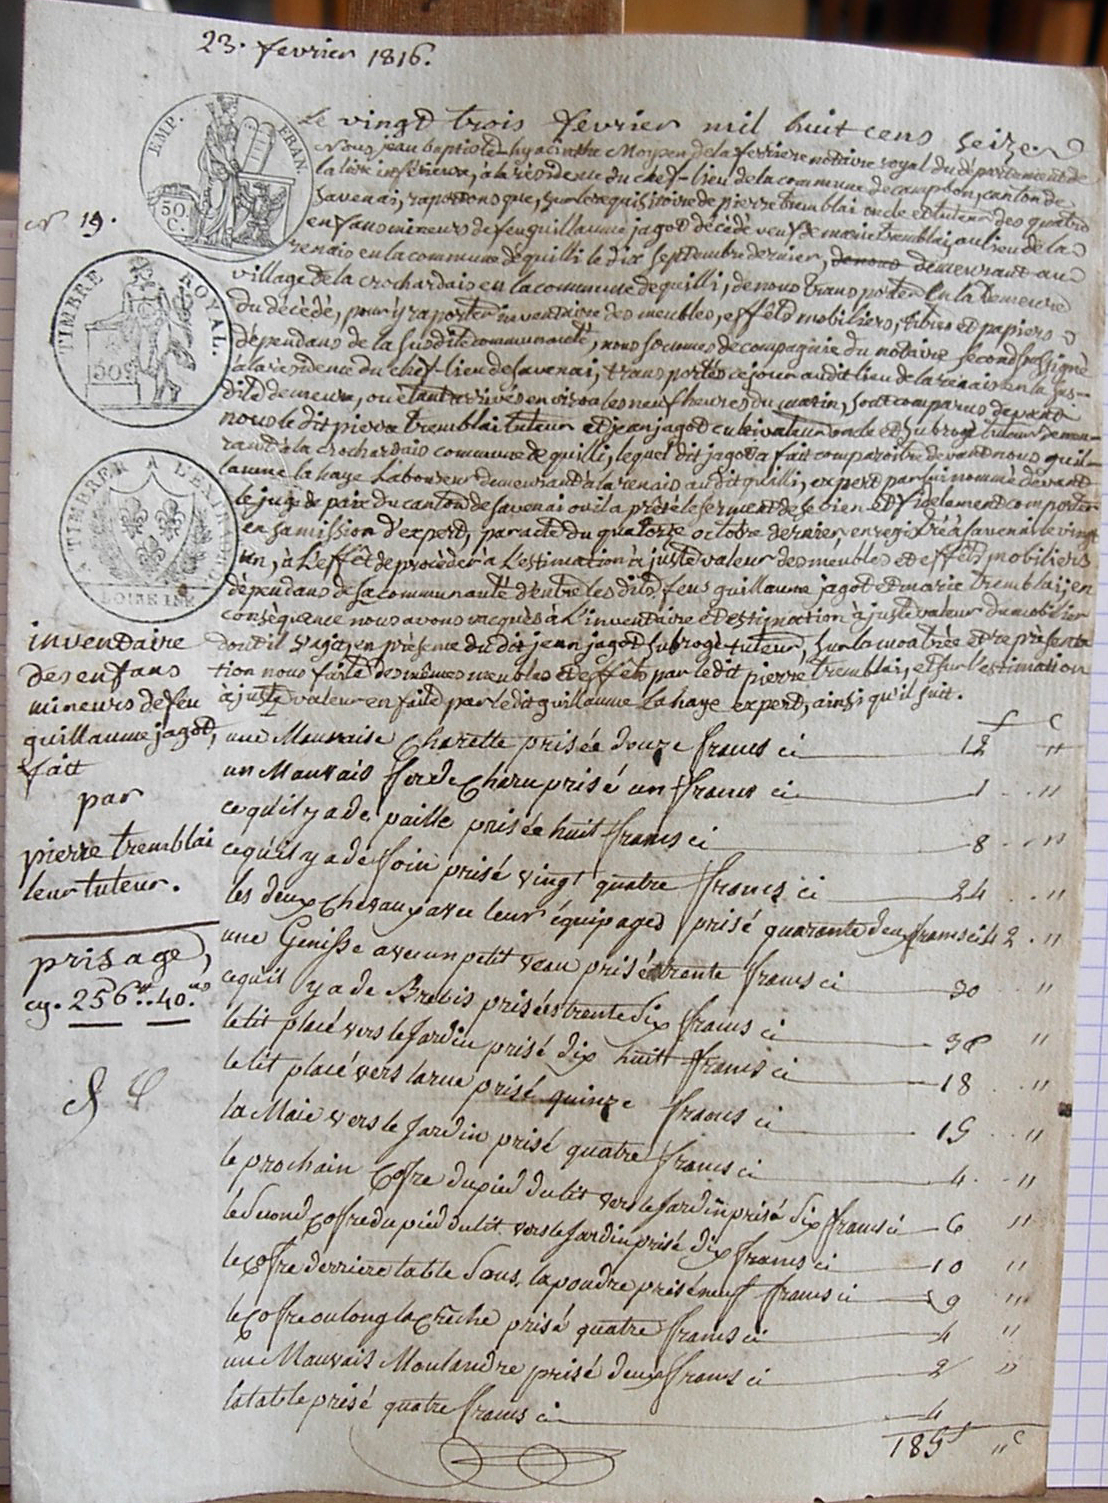 23. fevrier 1816.
EMP. FRAN.
50 C.
Le vingt trois fevrier mil huit cens seize
Nous jean baptiste hyacinthe Moysen de la ferriere notaire royal du département de
la loire inférieure, à la résidence du chef-lieu de la commune de campbon, canton de
Savenai, raportons que, sur le requisitoire de pierre tremblai oncle et tuteur des quatre
enfans mineurs de feu guillaume jagot décédé veuf de marie tremblai, au lieu de la
renais en la commune de quilli le dix septembre dernier, demeurant au
village de la crochardais en la commune de quilli, de nous transporter en la demeure
du décédé, pour y raporter inventaire des meubles, effets mobiliers, titres et papiers
dépendans de la susdite communauté, nous sommes de compagnie du notaire second soussigné
à la résidence du chef-lieu de Savenai, transportés ce jour audit lieu de la renais en la sus-
dite demeure, ou étant arrivés environ les neuf heures du matin, sont comparus devant
nous le dit pierre tremblai tuteur et jean jagot cultivateur oncle et subrogé tuteur demeu-
rant à la crochardais commune de quilli, lequel dit jagot a fait comparoitre devant nous guil-
laume la haye laboureur demeurant à la renais audit quilli, expert par lui nommé devant
le juge de paix du canton de Savenai ou il a prété le serment de se bien et fidelement comporter
en sa mission d'expert, par acte du quatorze octobre dernier, enregistré à Savenai le vingt
un, à l'effet de procéder à l'estimation à juste valeur des meubles et effets mobiliers
dépendans de sa communauté d'entre les dits feus guillaume jagot et marie tremblai, en
conséquence nous avons vacqués à l'inventaire et estimation à juste valeur du mobilier
dont il s'agit, en présence du dit jean jagot subrogé tuteur, sur la montrée et représenta
tion nous faite des mêmes meubles et effets par le dit pierre tremblai, et sur l'estimation
à juste valeur en faite par le dit guillaume la haye expert, ainsi qu'il suit.
N 19.
TIMBRE ROYAL.
50c
A TIMBRER A L'EXTRAORD.
LOIRE INF
inventaire
des enfans
mineurs de feu
guillaume jagot,
fait
par
pierre tremblai
leur tuteur.
prisage,
cy. 256..40.
f c
une Mauvaise Charette prisée douze francs ci 12 "
un Mauvais fer de Charu prisé un francs ci 1 "
ce qu'il y a de paille prisée huit francs ci 8 "
ce qu'il y a de foin prisé vingt quatre francs ci 24 "
les deux Chevaux avec leur équipages prisé quarante deux francs ci 42 "
une Genisse avec un petit veau prisé trente francs ci 30 "
ce qu'il y a de Brebis prisées trente six francs ci 36 "
le lit placé vers le Jardin prisé dix huit francs ci 18 "
le lit placé vers la rue prisé quinze francs ci 15 "
la Maie vers le Jardin prisé quatre francs ci 4 "
le prochain Coffre du pied du lit vers le Jardin prisé Six francs ci 6 "
le Second Coffre du pied du lit vers le Jardin prisé dix francs ci 10 "
le Coffre derriere table Sous la poudre prisé neuf francs ci 9 "
le Coffre ou long la Creche prisé quatre francs ci 4 "
un Mauvais Moulandre prisé deux francs ci 2 "
la table prisé quatre francs ci 4
185 f " c